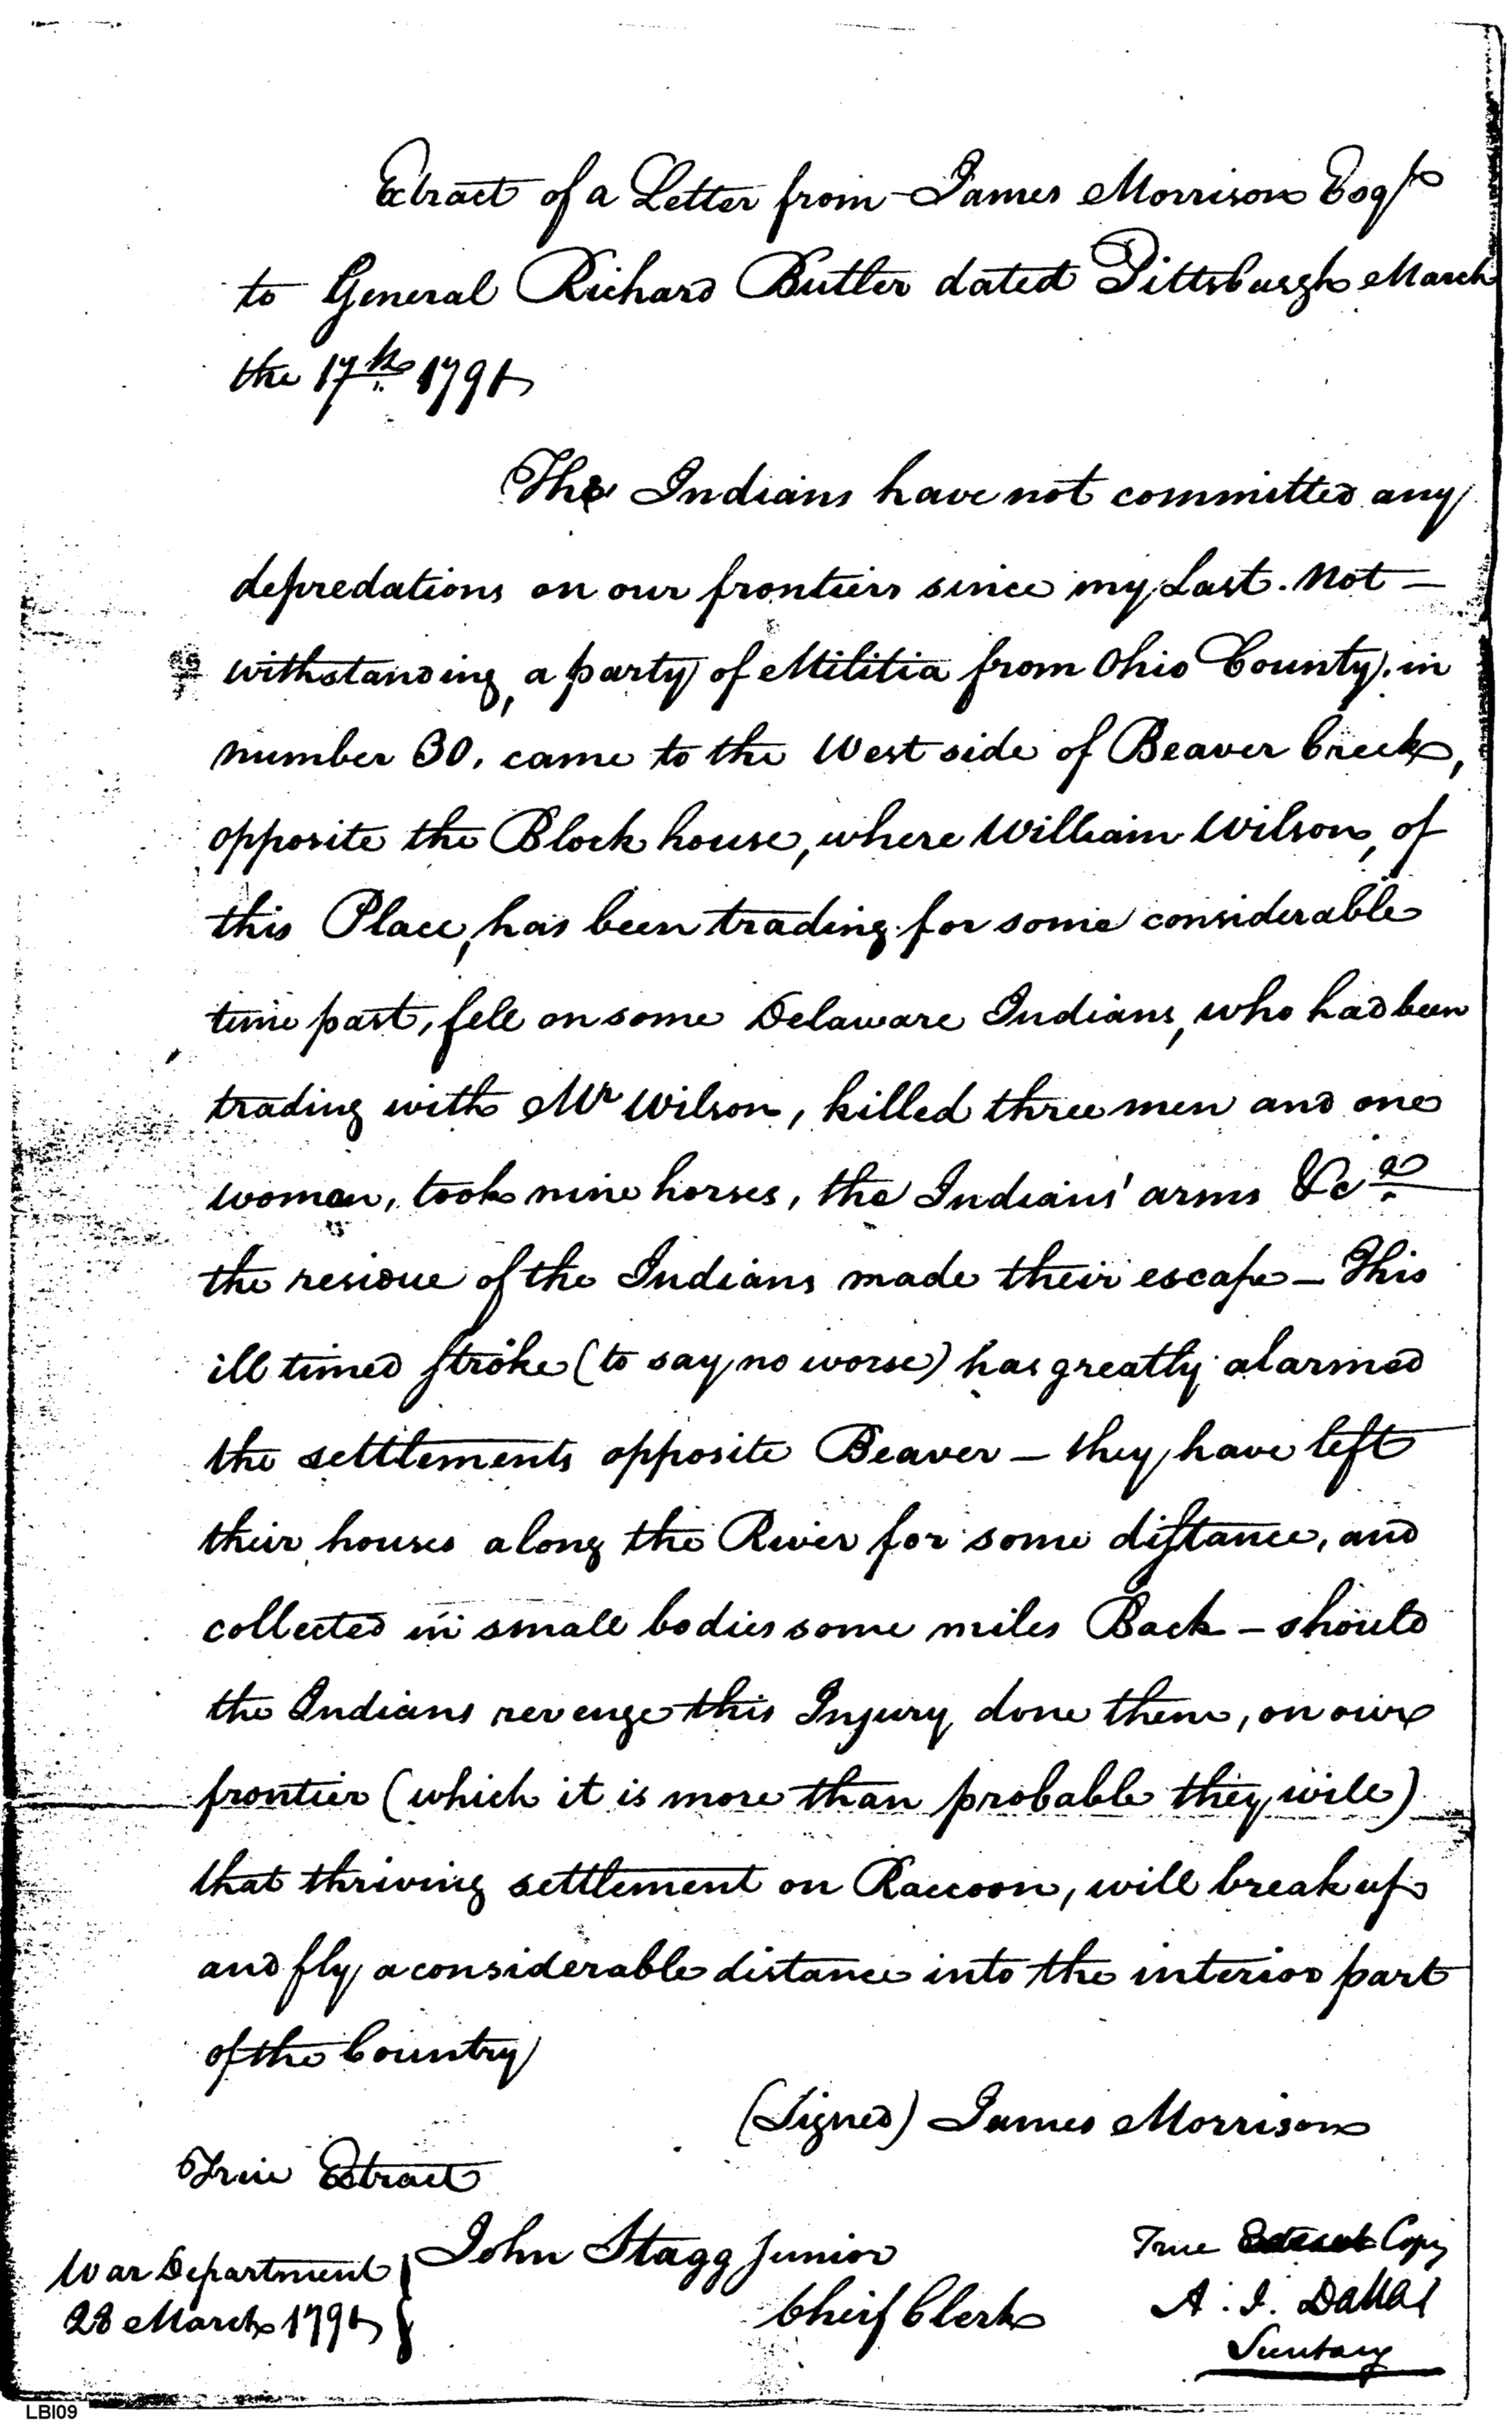 Extract of a Letter from James Morrison Esqr
to General Richard Butler dated Pittsburgh March
the 17th 1791
The Indians have not committed any
depredations on our frontiers since my Last. Not—
withstanding, a party of Militia from Ohio County. in
number 30. came to the West side of Beaver Creek,
opposite the Block house, where William Wilson, of
this Place, has been trading for some considerable
time past, fell on some Delaware Indians, who had been
trading with Mr Wilson, killed three men and one
woman, took nine horses, the Indians' arms &ca
the residue of the Indians made their escape — This
ill timed stroke (to say no worse) has greatly alarmed
the settlements opposite Beaver — they have left
their houses along the River for some distance, and
collected in small bodies some miles Back — should
the Indians revenge this Injury done them, on our
frontier (which it is more than probable they will)
that thriving settlement on Raccoon, will break up
and fly a considerable distance into the interior part
of the Country
(Signed) James Morrison
True Extract
John Stagg Junior
Cheif Clerk
War Department
28 March 1791
True Copy
A. J. Dallas
Secretary
LBI09